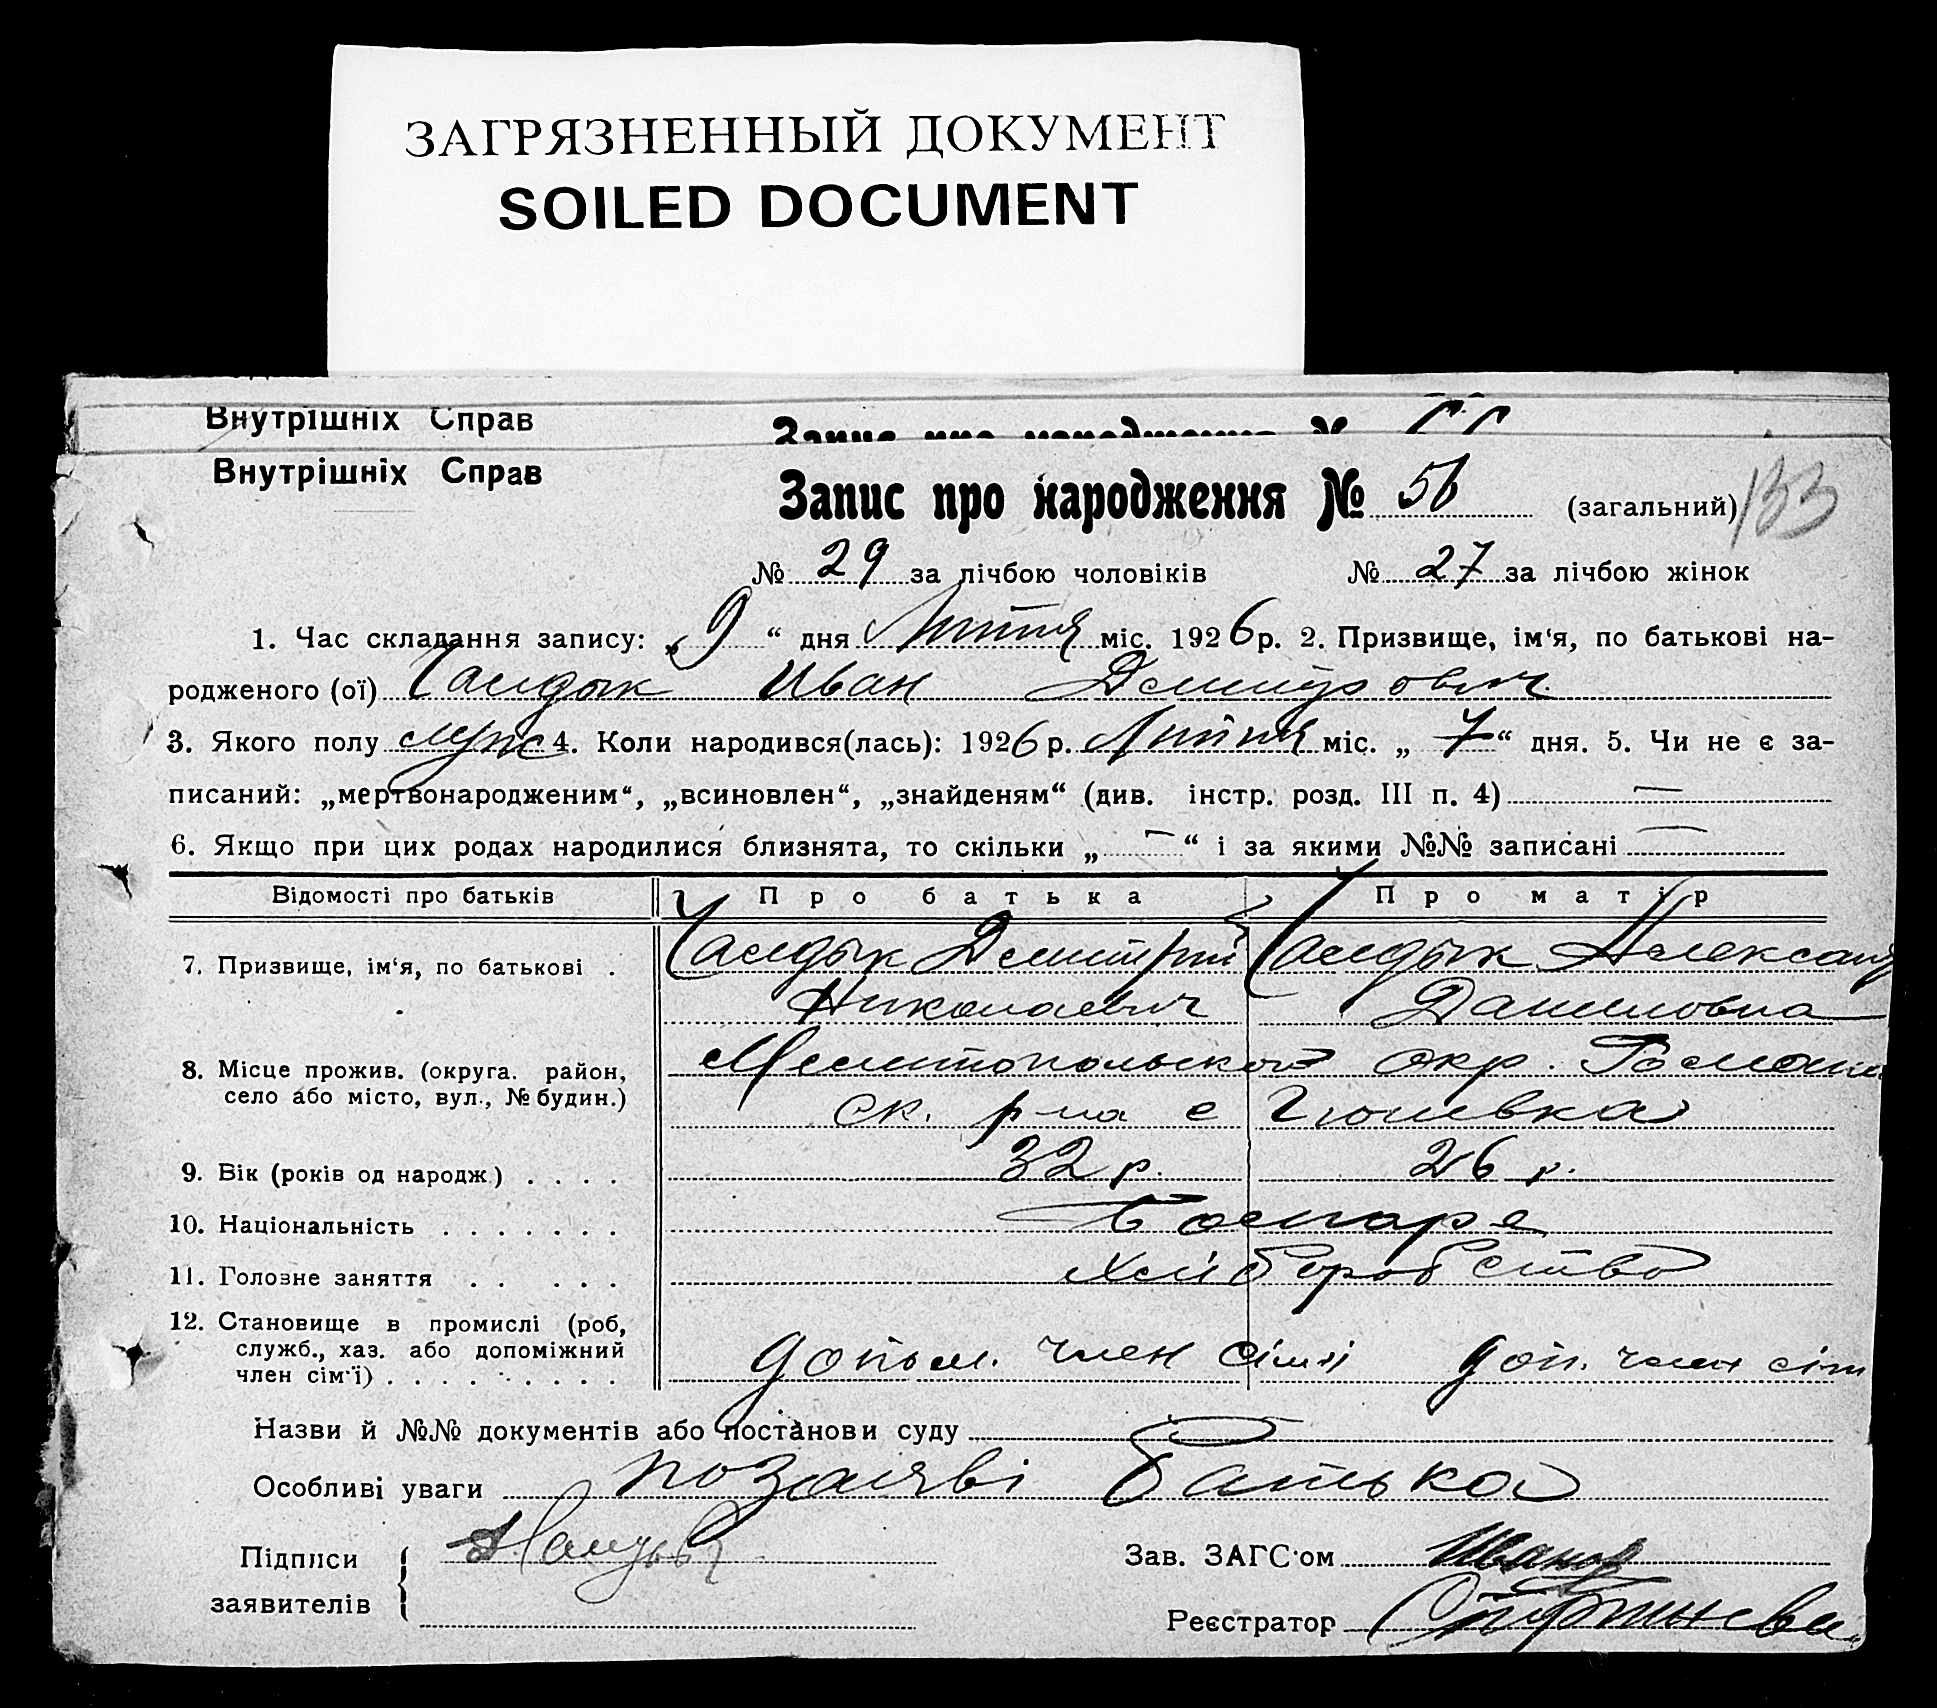 ЗАГРЯЗНЕННЫЙ ДОКУМЕНТ
SOILED DOCUMENT
Внутрішніх Справ
Запис про народження №
Внутрішніх Справ
Запис про народження № 56 (загальний) 133
№ 29 за лічбою чоловіків № 27 за лічбою жінок
1. Час складання запису: „9“ дня Липня міс. 1926 р. 2. Призвище, ім‘я, по батькові на-
родженого (ої) Иван
3. Якого полу муж 4. Коли народився(лась): 1926 р. Липня міс. „7“ дня. 5. Чи не є за-
писаний: „мертвонародженим“, „всиновлен“, „знайденям“ (див. інстр. розд. III п. 4) —
6. Якщо при цих родах народилися близнята, то скільки „—“ і за якими №№ записані —
Відомості про батьків Про батька Про матір
7. Призвище, ім‘я, по батькові . Дмитрий
Николаевич Даниловна
8. Місце прожив. (округа. район,
село або місто, вул., № будин.)
окр.
ск. р-на с Гюневка
9. Вік (років од народж.) . . . . 32 р. 26 р.
10. Національність . . . . . . . Болгаре
11. Головне заняття . . . . . Хліборобство
12. Становище в промислі (роб,
служб., хаз. або допоміжний
член сім‘ї) . . . . . . . . . допом. член сімї доп. член сім
Назви й №№ документів або постанови суду
Особливі уваги по заяві батька
Підписи
заявителів
Зав. ЗАГС‘ом Иванов
Реєстратор